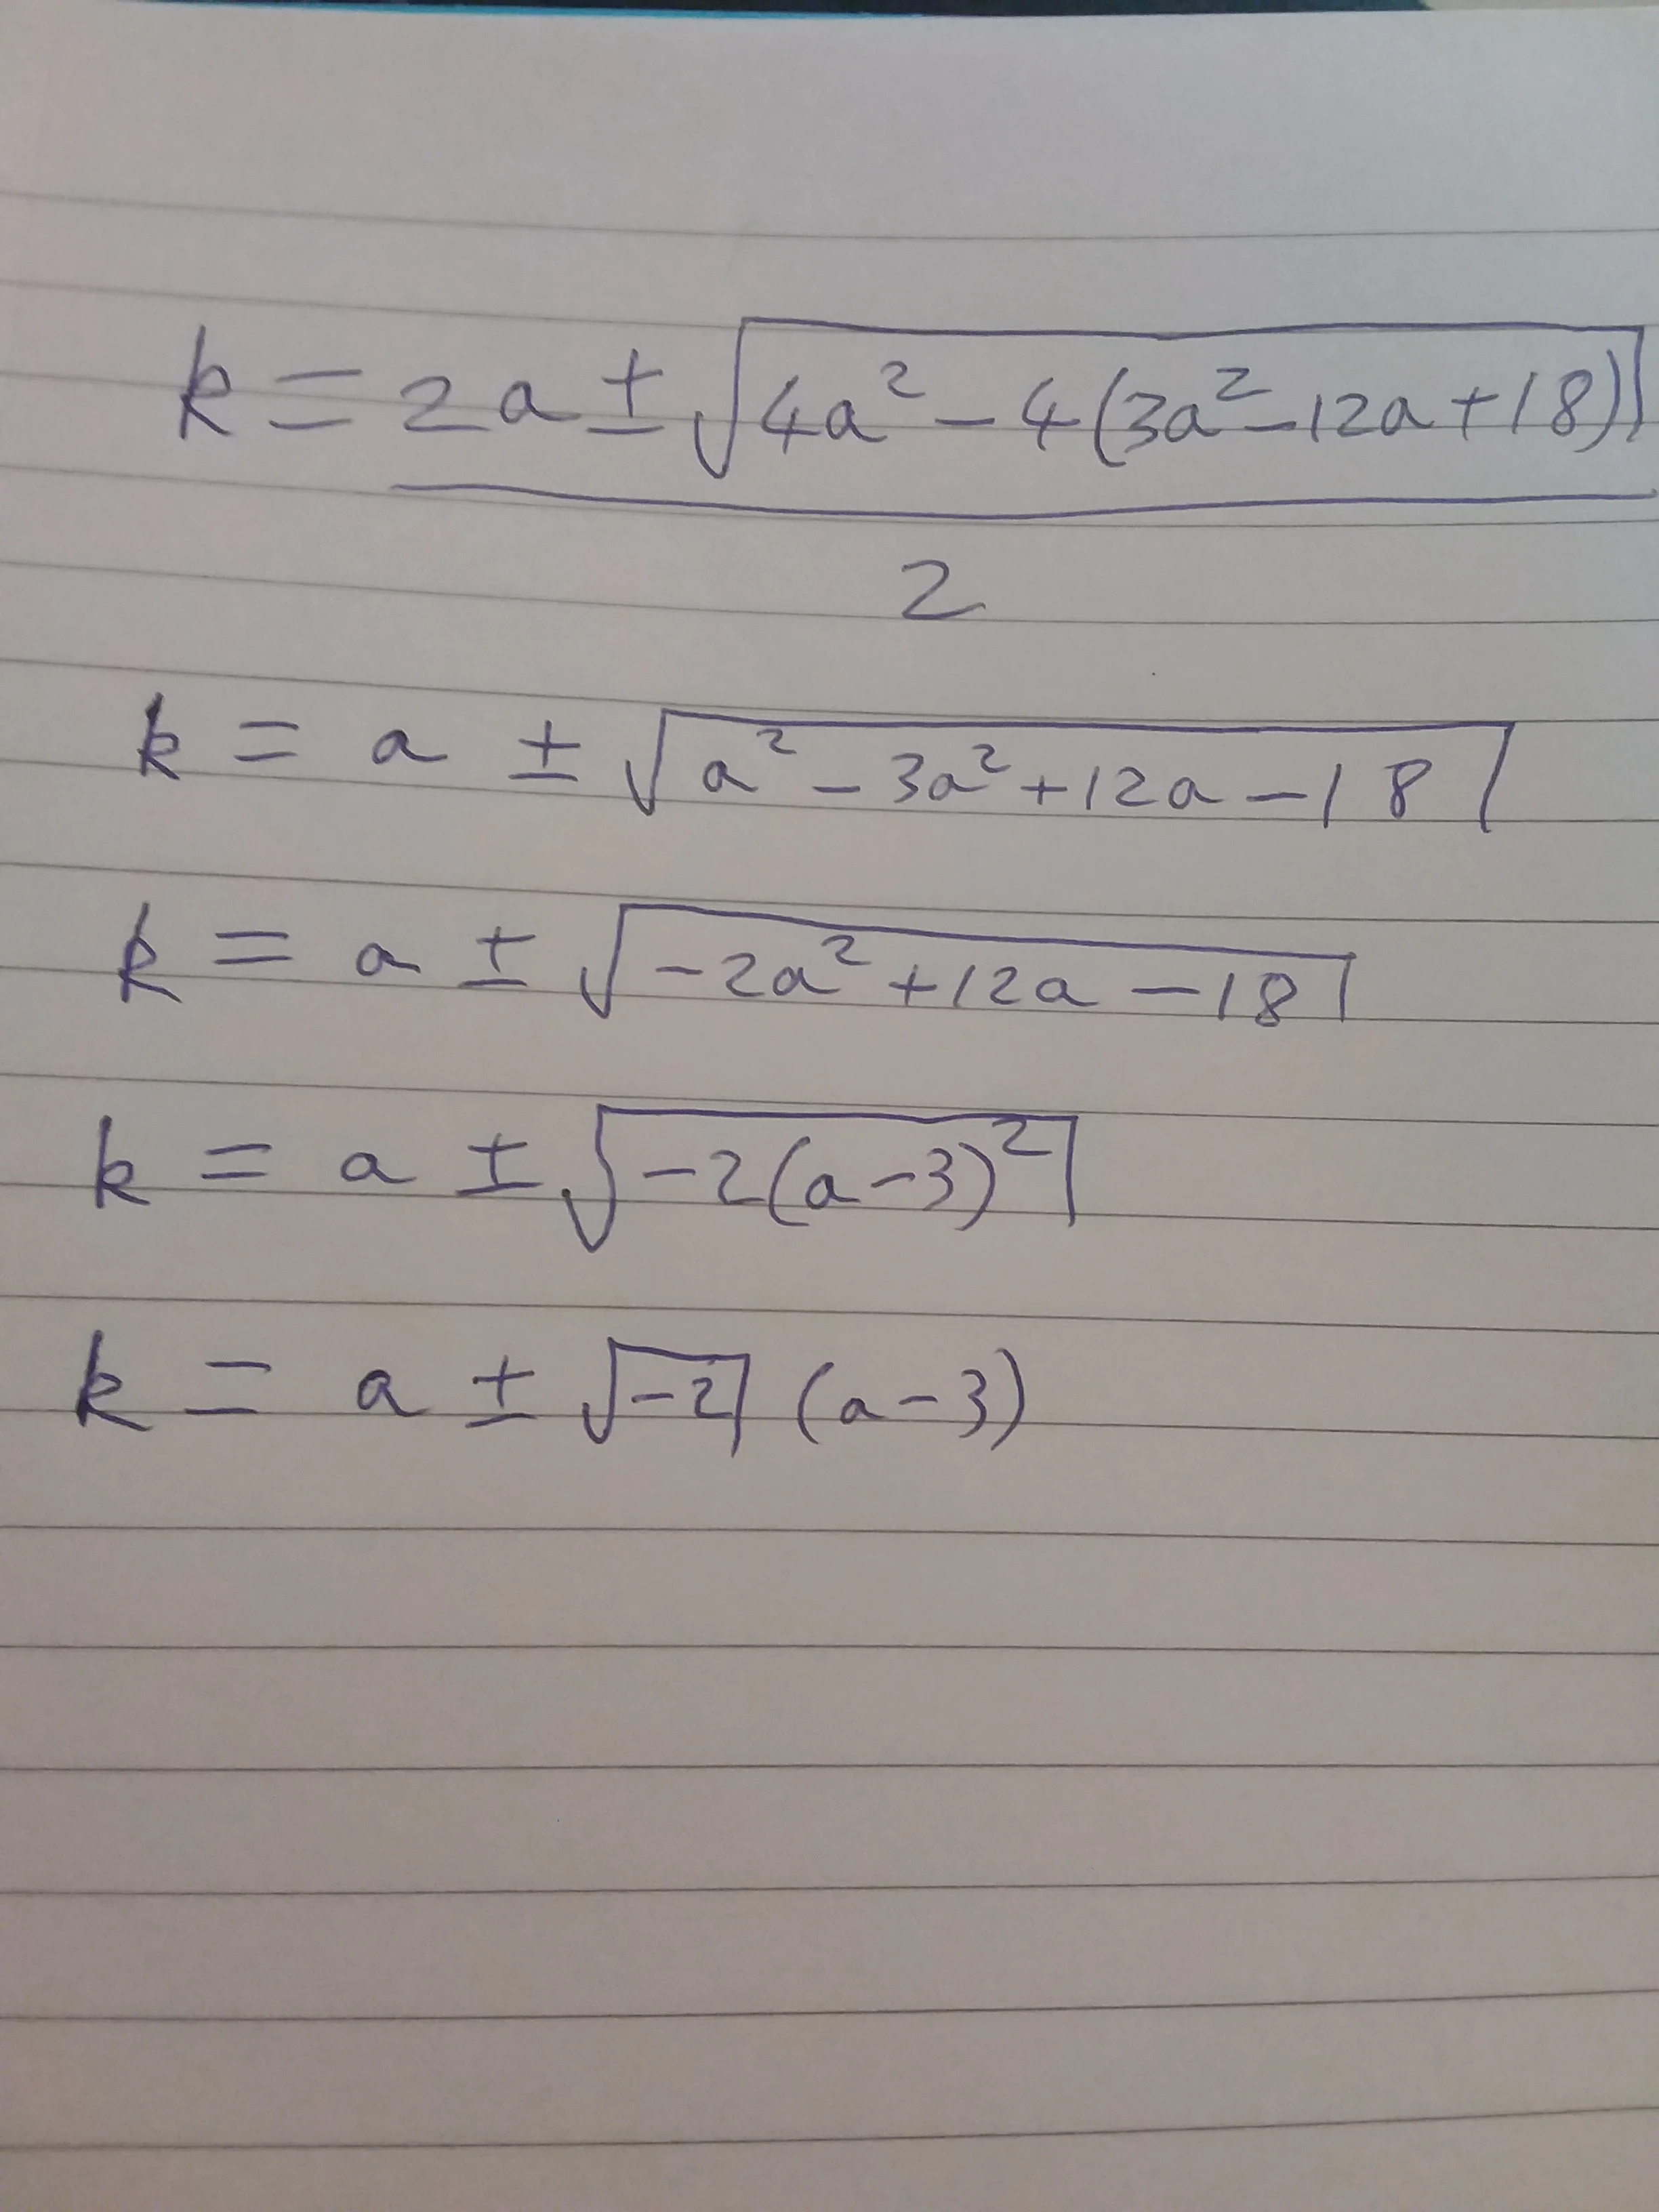 k = (2a ± √(4a² - 4(3a² - 12a + 18))) / 2
k = a ± √(a² - 3a² + 12a - 18)
k = a ± √(-2a² + 12a - 18)
k = a ± √(-2(a-3)²)
k = a ± √(-2) (a-3)